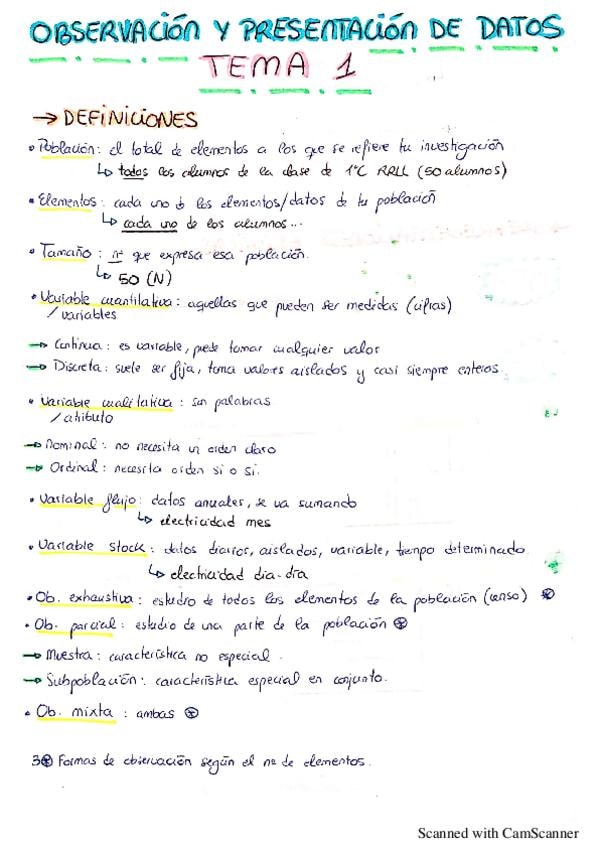 OBSERVACIÓN Y PRESENTACIÓN DE DATOS
TEMA 1
→ DEFINICIONES
• Población: el total de elementos a los que se refiere tu investigación
↳ todos los alumnos de la clase de 1ºC RRLL (50 alumnos)
• Elementos: cada uno de los elementos/datos de tu población
↳ cada uno de los alumnos...
• Tamaño: nº que expresa esa población.
↳ 50 (N)
• Variable cuantitativa: aquellas que pueden ser medidas (cifras)
/ variables
→ Continua: es variable, puede tomar cualquier valor
→ Discreta: suele ser fija, toma valores aislados y casi siempre enteros.
• Variable cualitativa: son palabras
/ atributo
→ Nominal: no necesita un orden claro
→ Ordinal: necesita orden si o si.
• Variable flujo: datos anuales, se va sumando
↳ electricidad mes
• Variable stock: datos diarios, aislados, variable, tiempo determinado.
↳ electricidad día-día
• Ob. exhaustiva: estudio de todos los elementos de la población (censo) ⊛
• Ob. parcial: estudio de una parte de la población ⊛
→ Muestra: característica no especial.
→ Subpoblación: característica especial en conjunto.
• Ob. mixta: ambas ⊛
3⊛ Formas de observación según el nº de elementos.
Scanned with CamScanner